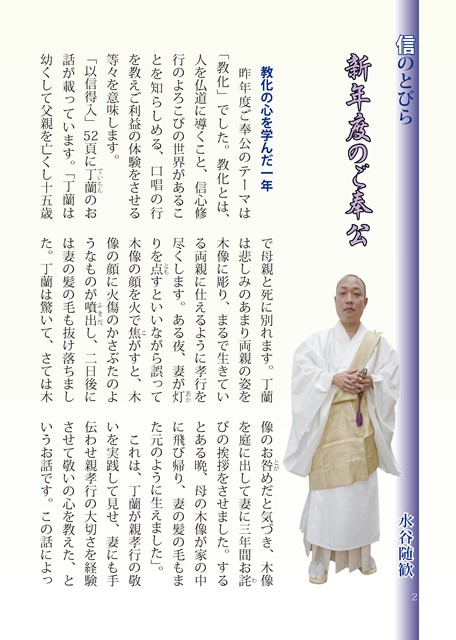 信のとびら
新年度のご奉公
水谷随歓
教化の心を学んだ一年
昨年度ご奉公のテーマは
「教化」でした。教化とは、
人を仏道に導くこと、信心修
行のよろこびの世界があるこ
とを知らしめる、口唱の行
を教えご利益の体験をさせる
等々を意味します。
「以信得入」52頁に丁蘭のお
話が載っています。「丁蘭は
幼くして父親を亡くし十五歳
で母親と死に別れます。丁蘭
は悲しみのあまり両親の姿を
木像に彫り、まるで生きてい
る両親に仕えるように孝行を
尽くします。ある夜、妻が灯
りを点すといいながら誤って
木像の顔を火で焦がすと、木
像の顔に火傷のかさぶたのよ
うなものが噴出し、二日後に
は妻の髪の毛も抜け落ちまし
た。丁蘭は驚いて、さては木
像のお咎めだと気づき、木像
を庭に出して妻に三年間お詫
びの挨拶をさせました。する
とある晩、母の木像が家の中
に飛び帰り、妻の髪の毛もま
た元のように生えました」。
これは、丁蘭が親孝行の敬
いを実践して見せ、妻にも手
伝わせ親孝行の大切さを経験
させて敬いの心を教えた、と
いうお話です。この話によっ
2